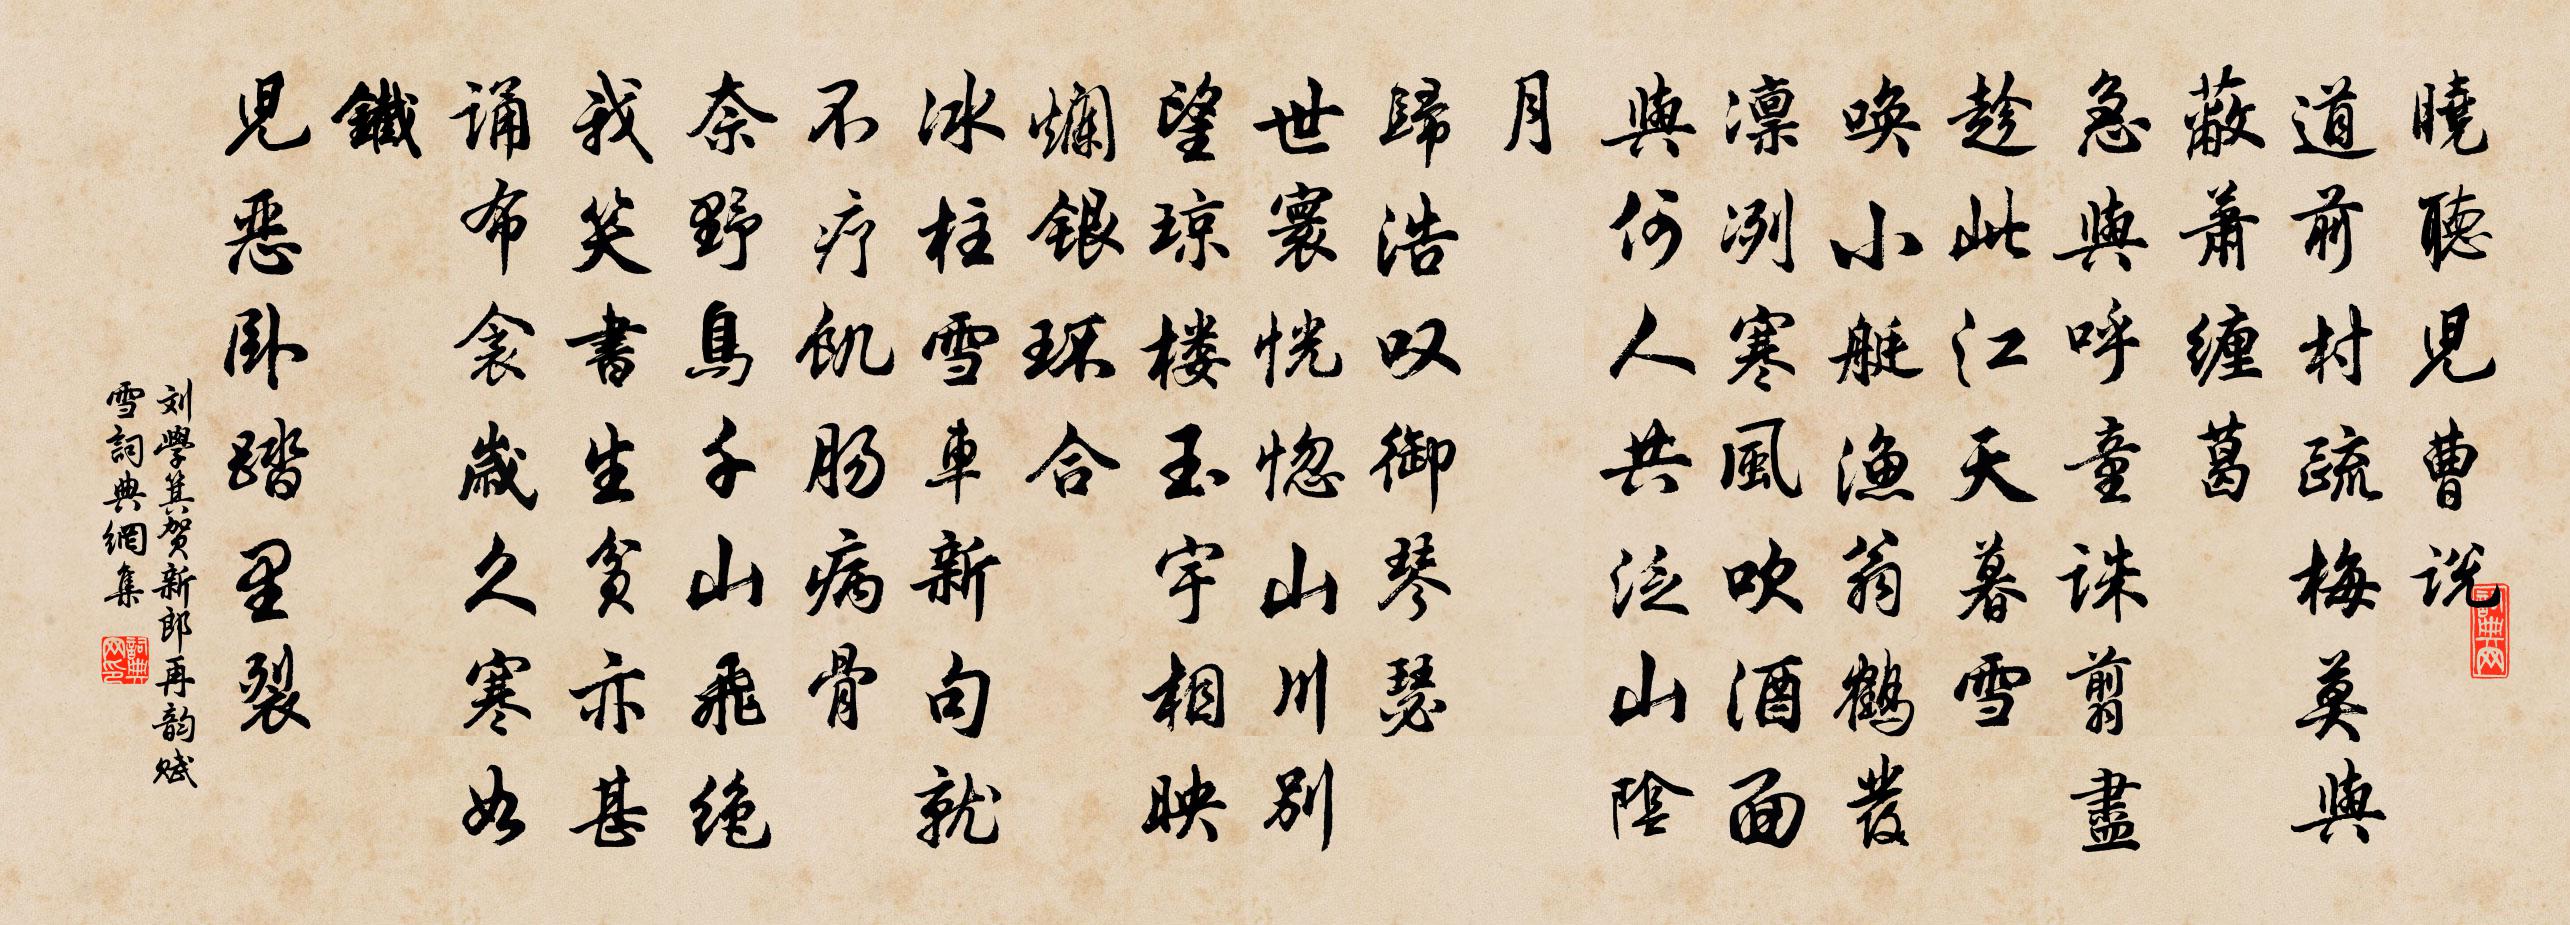 曉聽兒曹说
道前村疏梅莫與
蔽蕭缠葛
急與呼童诛剪盡
趁此江天暮雪
唤小艇渔翁鹤發
凛冽寒風吹酒面
與何人共泛山陰
月
歸浩叹御琴瑟
世寰恍惚山川别
望琼楼玉宇相映
爛银环合
冰柱雪車新句就
不疗飢肠病骨
奈野鳥千山飛绝
我笑書生贫亦甚
诵布衾歲久寒如
鐵
兒惡卧踏里裂
刘學箕贺新郎再韵赋
雪詞典網集
詞典网
詞典网印